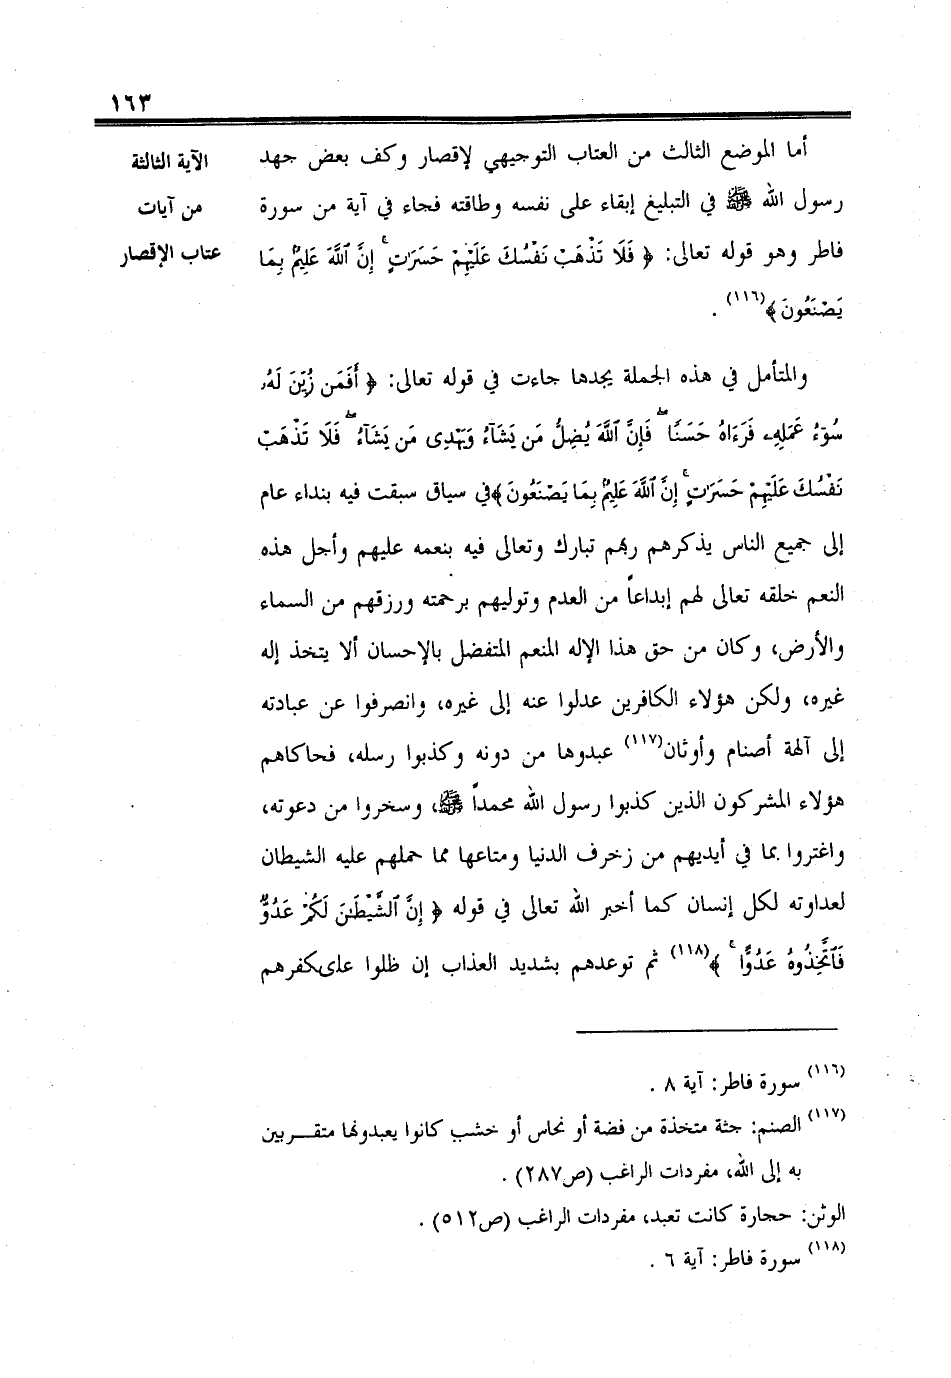 ١٦٣
الآية الثالثة
من آيات
عتاب الإقصار
أما الموضع الثالث من العتاب التوجيهي لإقصار وكف بعض جهد
رسول الله ﷺ في التبليغ إبقاء على نفسه وطاقته فجاء في آية من سورة
فاطر وهو قوله تعالى: ﴿ فَلَا تَذْهَبْ نَفْسُكَ عَلَيْهِمْ حَسَرَٰتٍ ۚ إِنَّ ٱللَّهَ عَلِيمٌۢ بِمَا
يَصْنَعُونَ ﴾(١١٦) .
والمتأمل في هذه الجملة يجدها جاءت في قوله تعالى: ﴿ أَفَمَن زُيِّنَ لَهُۥ
سُوٓءُ عَمَلِهِۦ فَرَءَاهُ حَسَنًا ۖ فَإِنَّ ٱللَّهَ يُضِلُّ مَن يَشَآءُ وَيَهْدِى مَن يَشَآءُ ۖ فَلَا تَذْهَبْ
نَفْسُكَ عَلَيْهِمْ حَسَرَٰتٍ ۚ إِنَّ ٱللَّهَ عَلِيمٌۢ بِمَا يَصْنَعُونَ ﴾في سياق سبقت فيه بنداء عام
إلى جميع الناس يذكرهم ربهم تبارك وتعالى فيه بنعمه عليهم وأجل هذه
النعم خلقه تعالى لهم إبداعاً من العدم وتوليهم برحمته ورزقهم من السماء
والأرض، وكان من حق هذا الإله المنعم المتفضل بالإحسان ألا يتخذ إله
غيره، ولكن هؤلاء الكافرين عدلوا عنه إلى غيره، وانصرفوا عن عبادته
إلى آلهة أصنام وأوثان(١١٧) عبدوها من دونه وكذبوا رسله، فحاكاهم
هؤلاء المشركون الذين كذبوا رسول الله محمداً ﷺ، وسخروا من دعوته،
واغتروا بما في أيديهم من زخرف الدنيا ومتاعها مما حملهم عليه الشيطان
لعداوته لكل إنسان كما أخبر الله تعالى في قوله ﴿ إِنَّ ٱلشَّيْطَٰنَ لَكُمْ عَدُوٌّ
فَٱتَّخِذُوهُ عَدُوًّا ۚ ﴾(١١٨) ثم توعدهم بشديد العذاب إن ظلوا على كفرهم
(١١٦) سورة فاطر: آية ٨ .
(١١٧) الصنم: جثة متخذة من فضة أو نحاس أو خشب كانوا يعبدونها متقـــربين
به إلى الله، مفردات الراغب (ص٢٨٧) .
الوثن: حجارة كانت تعبد، مفردات الراغب (ص٥١٢) .
(١١٨) سورة فاطر: آية ٦ .